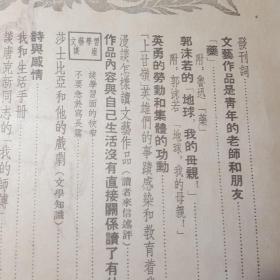 發刊詞
文藝作品是青年的老師和朋友
「藥」
附：魯迅「藥」
郭沫若的「地球，我的母親！」
附：郭沫若「地球，我的母親！」
英勇的勞動和集體的功勳
「上甘嶺」英雄們的事蹟感染和教育着我
漫談怎樣讀文藝作品（讀者來信選評）
作品內容與自己生活沒有直接關係讀了有
文藝學習
談學習面的狹窄
不要急於寫長篇
莎士比亞和他的戲劇（文學知識）
詩與感情
我和生活手冊
談唐克新同志的「我的師傅